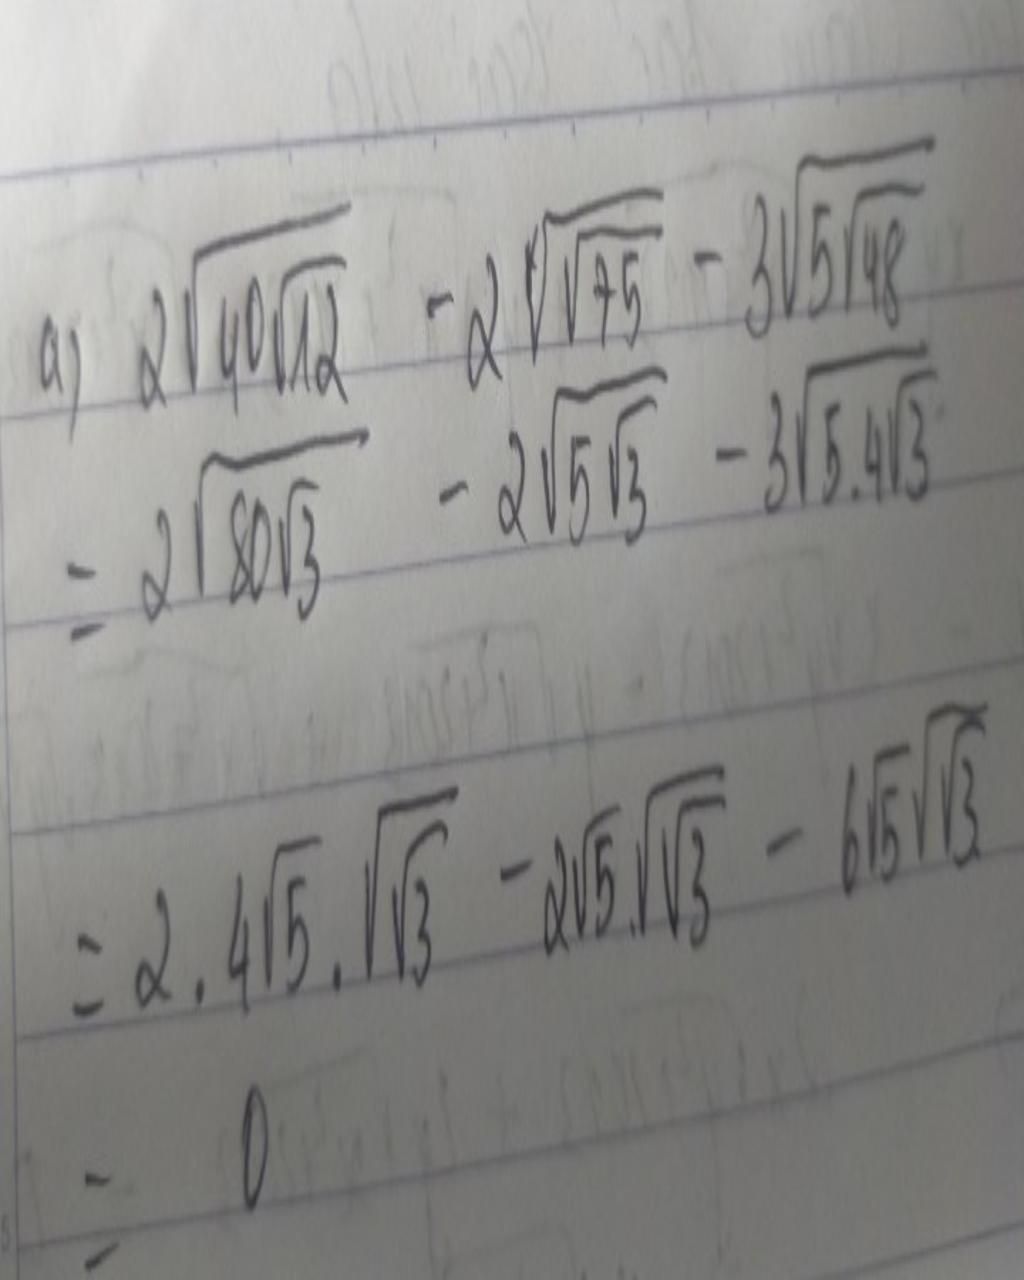 a) 2√(40√12) - 2√(√75) - 3√(5√48)
= 2√(80√3) - 2√(5√3) - 3√(5.4√3)
= 2.4√5.√(√3) - 2√5.√(√3) - 6√5√(√3)
= 0